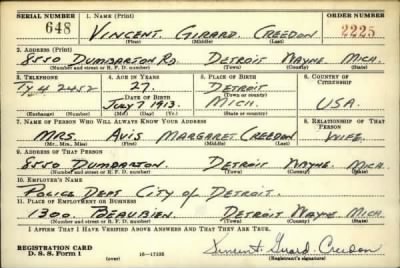 SERIAL NUMBER 1. NAME (Print) ORDER NUMBER
648 VINCENT. GIRARD. CREEDON 2225
(First) (Middle) (Last)
2. ADDRESS (Print)
8550 DUMBARTON RD. DETROIT WAYNE MICH.
(Number and street or R. F. D. number) (Town) (County) (State)
3. TELEPHONE 4. AGE IN YEARS 5. PLACE OF BIRTH 6. COUNTRY OF CITIZENSHIP
Ty 4 2452 27. DETROIT
DATE OF BIRTH (Town or county)
JULY 7 1913. MICH. USA.
(Exchange) (Number) (Mo.) (Day) (Yr.) (State or country)
7. NAME OF PERSON WHO WILL ALWAYS KNOW YOUR ADDRESS 8. RELATIONSHIP OF THAT PERSON
MRS. AVIS MARGARET CREEDON WIFE.
(Mr., Mrs., Miss) (First) (Middle) (Last)
9. ADDRESS OF THAT PERSON
8550 DUMBARTON. DETROIT WAYNE. MICH.
(Number and street or R. F. D. number) (Town) (County) (State)
10. EMPLOYER'S NAME
POLICE DEPT CITY OF DETROIT.
11. PLACE OF EMPLOYMENT OR BUSINESS
1300. BEAUBIEN. DETROIT WAYNE MICH.
(Number and street or R. F. D. number) (Town) (County) (State)
I AFFIRM THAT I HAVE VERIFIED ABOVE ANSWERS AND THAT THEY ARE TRUE.
REGISTRATION CARD
D. S. S. Form 1 (over) 16—17105 Vincent Girard Creedon
(Registrant's signature)